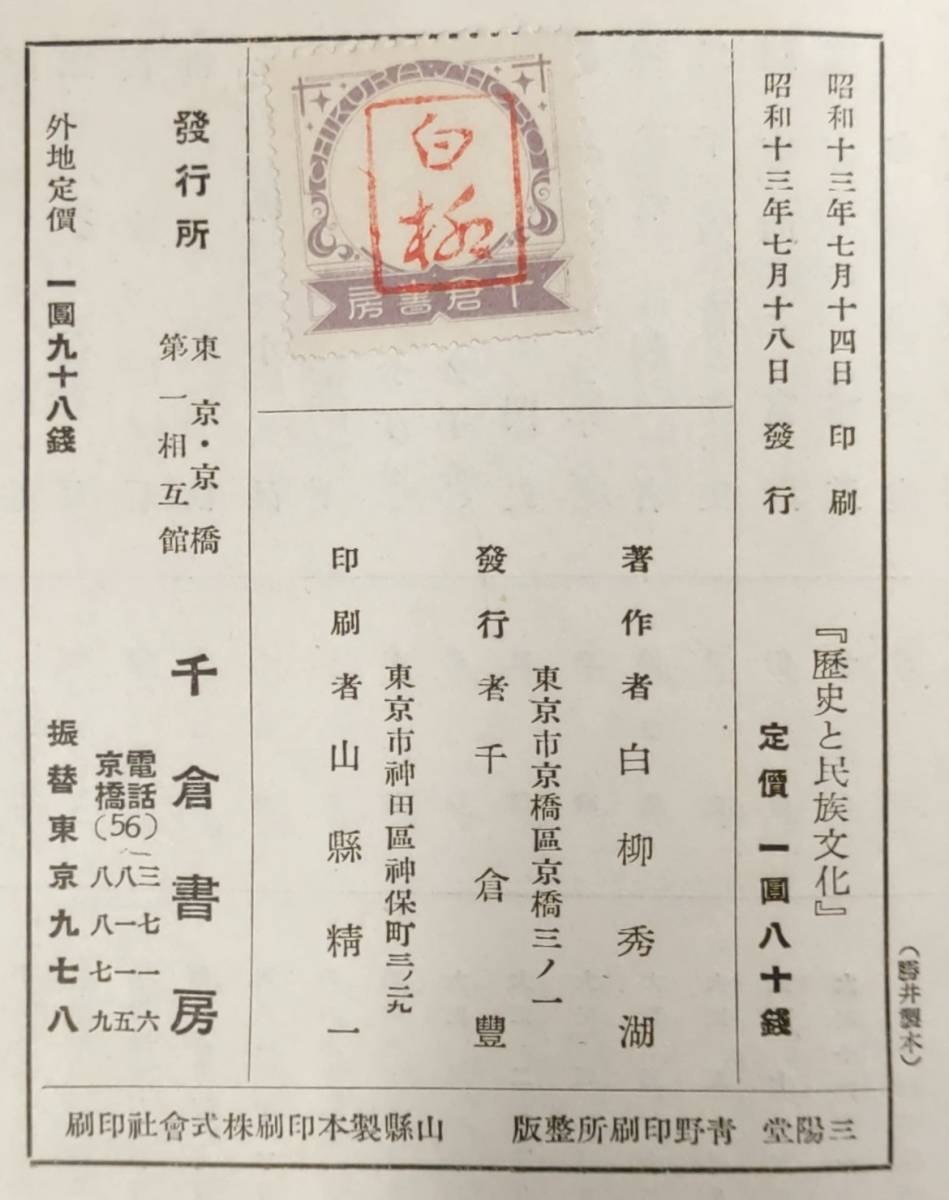 昭和十三年七月十四日 印刷
昭和十三年七月十八日 發行
『歷史と民族文化』
定價 一圓八十錢
(勝井製本)
CHIKURA・SHOBO
白柳
千倉書房
著作者 白柳秀湖
東京市京橋區京橋三ノ一
發行者 千倉豐
東京市神田區神保町三ノ二九
印刷者 山縣精一
發行所
東京・京橋
第一相互館
千倉書房
電話
京橋(56)
三七一六
八一一五
八八七九
外地定價 一圓九十八錢
振替東京九七八
三陽堂 靑野印刷所整版 山縣製本印刷株式會社印刷